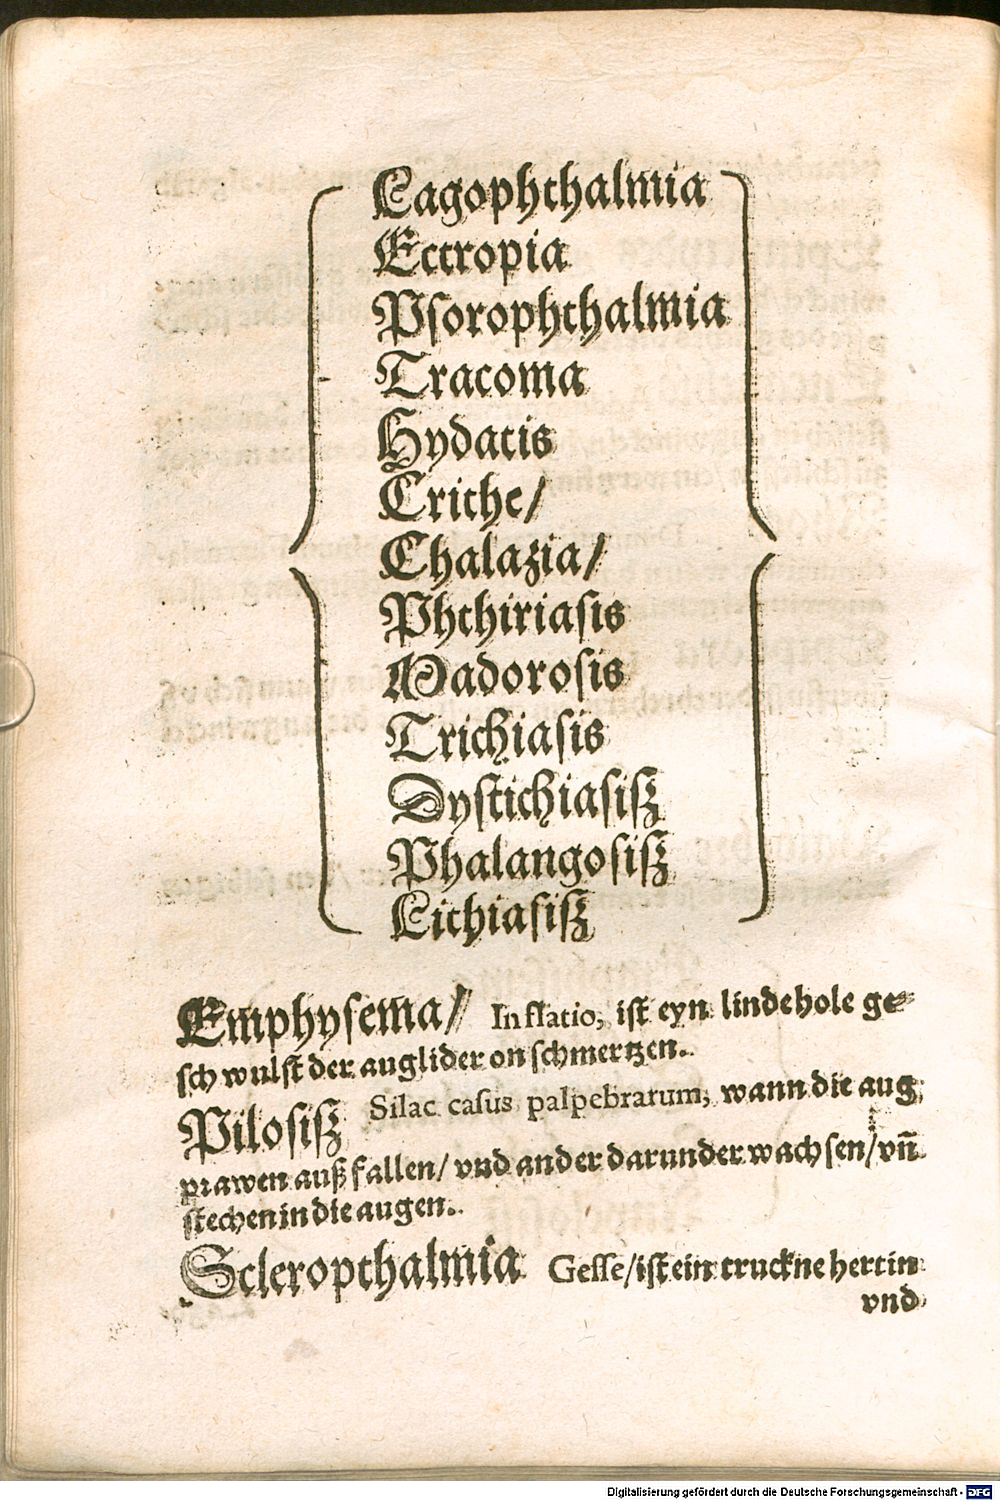 Lagophthalmia
Ectropia
Pſorophthalmia
Tracoma
Hydatis
Crithe/
Chalazia/
Phthiriaſis
Madoroſis
Trichiaſis
Dyſtichiaſiſz
Phalangoſiſz
Lithiaſiſz
Emphyſema/ Inflatio, iſt eyn linde hole ge⸗
ſchwulſt der auglider on ſchmertzen.
Piloſiſz Silac caſus palpebrarum, wann die aug
prawen auß fallen/ vnd ander darunder wachſen/ vñ
ſtechen in die augen.
Scleropthalmia Gelle/ iſt ein truckne hertin
vnd
Digitalisierung gefördert durch die Deutsche Forschungsgemeinschaft - DFG